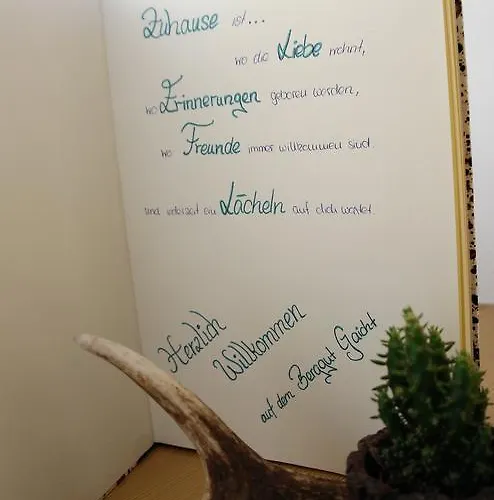 Zuhause ist...
wo die Liebe wohnt,
wo Erinnerungen geboren werden,
wo Freunde immer willkommen sind
und jederzeit ein Lächeln auf dich wartet.
Herzlich
Willkommen
auf dem Berggut Gaicht